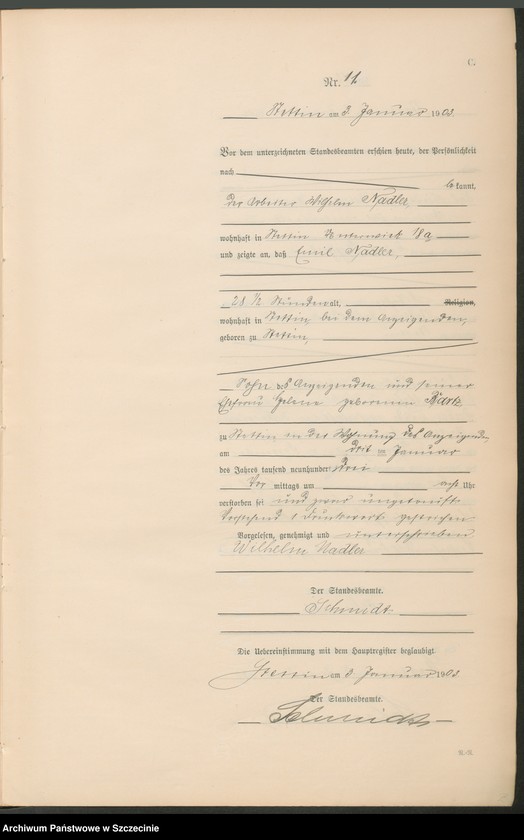 C.
Nr. 11
Stettin am 3 Januar 1903.
Vor dem unterzeichneten Standesbeamten erschien heute, der Persönlichkeit
nach
bekannt,
der Arbeiter Wilhelm Nadler,
wohnhaft in Stettin Unterwiek 18a
und zeigte an, daß Emil Nadler,
28 1/2 Stunden alt, Religion,
wohnhaft in Stettin, bei dem Anzeigenden,
geboren zu Stettin,
Sohn des Anzeigenden und seiner
Ehefrau Helene geborenen Bartz
zu Stettin in der Wohnung des Anzeigenden,
am dritten Januar
des Jahres tausend neunhundert drei
Vor mittags um acht Uhr
verstorben sei und zwar ungetauft
Vorstehend 1 Druckwort gestrichen
Vorgelesen, genehmigt und unterschrieben
Wilhelm Nadler
Der Standesbeamte.
Schmidt
Die Uebereinstimmung mit dem Hauptregister beglaubigt
Stettin am 3 Januar 1903
Der Standesbeamte.
Schmidt
Archiwum Państwowe w Szczecinie